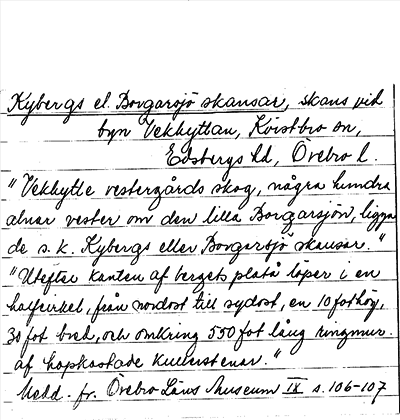 Kybergs el. Borgarsjö skansar, skans vid
byn Vekhyttan, Kvistbro sn,
Edsbergs hd, Örebro l.
"Vekhytte vestergårds skog, några hundra
alnar vester om den lilla Borgarsjön, ligga
de s. k. Kybergs eller Borgarsjö skansar."
"Utefter kanten af bergets platå löper i en
halfcirkel, från nordost till sydost, en 10 fot hög,
30 fot bred, och omkring 550 fot lång ringmur
af hopkastade kullerstenar."
Medd. fr. Örebro Läns Museum IX s. 106-107